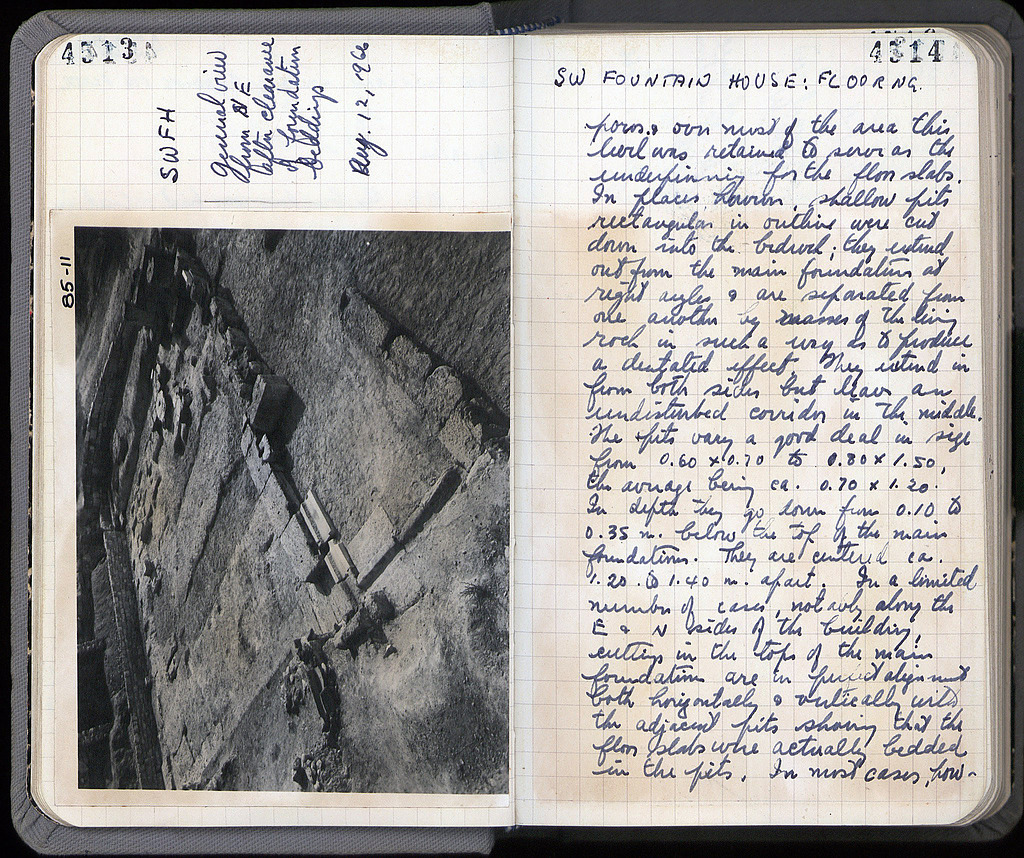 4313
SWFH
General view
from NE
after clearance
of foundation
beddings
Aug. 12, 1966
85-11
4314
SW FOUNTAIN HOUSE: FLOORING.
poros & over most of the area this
level was retained to serve as the
underpinning for the floor slabs.
In places, however, shallow pits
rectangular in outline were cut
down into the bedrock; they extend
out from the main foundations at
right angles & are separated from
one another by masses of the living
rock in such a way as to produce
a dentated effect. They extend in
from both sides but leave an
undisturbed corridor in the middle.
The pits vary a good deal in size
from 0.60 x 0.70 to 0.80 x 1.50,
the average being ca. 0.70 x 1.20.
In depth they go down from 0.10 to
0.35 m. below the top of the main
foundations. They are centered ca.
1.20 to 1.40 m. apart. In a limited
number of cases, notably along the
E & N sides of the building,
cuttings in the tops of the main
foundations are in perfect alignment
both horizontally & vertically with
the adjacent pits showing that the
floor slabs were actually bedded
in the pits. In most cases, how-